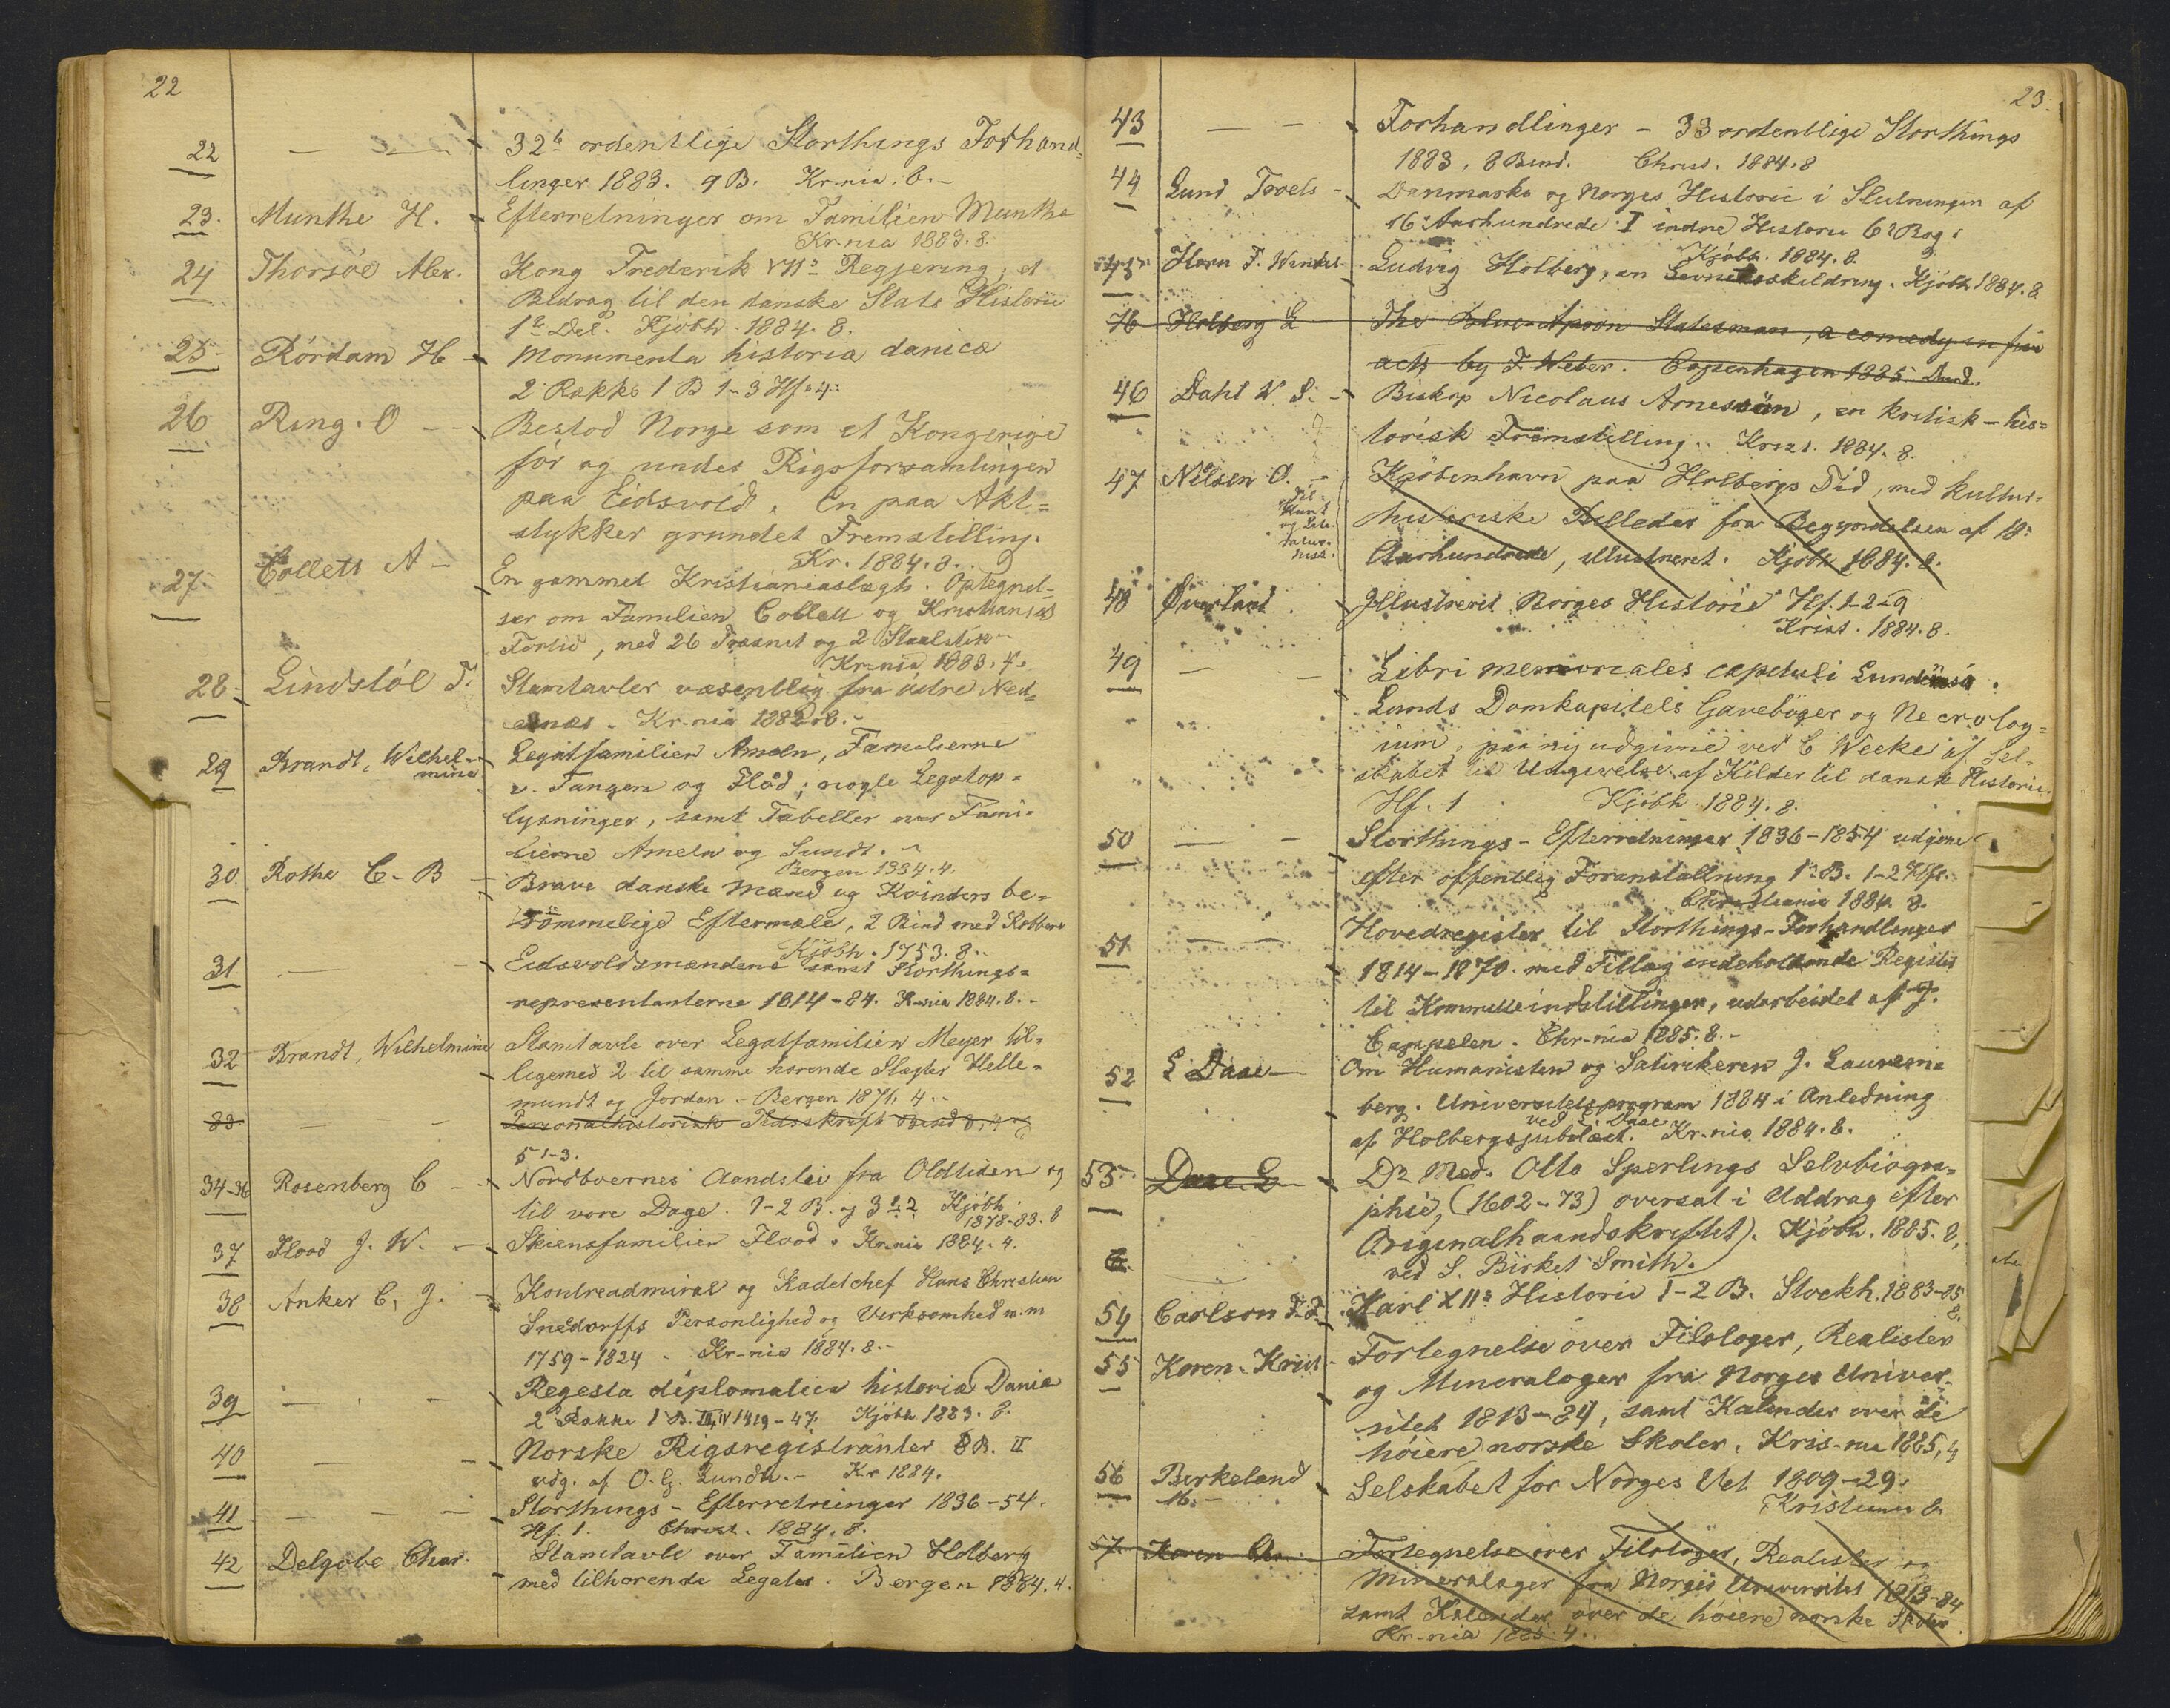 22
22 — — 32te ordentlige Storthings Forhand=
linger 1883. 9 B. Kr-nia. 8.-
23. Munthe H. - Efterretninger om Familien Munthe
Kr-nia 1883. 8.
24 Thorsöe Alex. Kong Frederik VIIs Regjering, et
Bidrag til den danske Stats Historie
1te Del. Kjöbh. 1884. 8.
25- Rördam H - Monumenta historia danica
2 Række 1 B 1-3 Hf. 4.
26 Ring. O - Bestod Norge som et Kongerige
för og under Rigsforsamlingen
paa Eidsvold. En paa Akt=
stykker grundet Fremstilling.
Kr. 1884. 8.
27. Collett A - En gammel Kristianiaslægt. Optegnel=
ser om Familien Collett og Kristianias
Fortid, med 26 Træsnit og 2 Staalstik
Kr-nia 1883. 4.
28- Lindstöl T. Stamtavler væsentlig fra östre Ned=
enæs. Kr-nia 1882. 8.-
29 Brandt, Wilhel-
mine Legatfamilien Ameln, Familierne
v. Tangen og Flöd; nogle Legatop=
lysninger, samt Tabeller over Fami-
lierne Ameln og Sundt.
Bergen 1884. 4.
30 Rothe C. B - Brave danske Mænd og Kvinders be=
römmelige Eftermæle, 2 Bind med Kobbere
Kjöbh. 1753. 8.
31 — — Eidsvoldsmændene samt Storthings=
representanterne 1814-84. Kr-nia 1884. 8.-
32 Brandt, Wilhelmine Stamtavle over Legatfamilien Meyer til-
ligemed 2 til samme hörende Slægter Helle-
mundt og Jordan - Bergen 1871, 4.
33 — — Personalhistorisk Tidsskrift Bind
5 1-3.
34-36 Rosenberg C - Nordboernes Aandsliv fra Oldtiden og
til vore Dage. 1-2 B. og 3 1-2 Kjöbh.
1878-83. 8
37 Flood J. W. - Skiensfamilien Flood. Kr-nia 1884. 4.
38 Anker C. J. - Kontreadmiral og Kadetchef Hans Christian
Snedorffs Personlighed og Virksomhed m.m
1759-1824 - Kr-nia 1884. 8.-
39 — — Regesta diplomatica historiæ Danicæ
2 Række 1 B. III, IV 1419-47. Kjöbh 1883. 8.
40 — — Norske Rigsregistranter 8 B. II
udg. af O. G. Lundh.- Kr 1884.
41 — — — Storthings-Efterretninger 1836-54.
Hf. 1. Christ. 1884. 8.
42 Delgobe Char. Stamtavle over Familien Holberg
med tilhorende Legater. Bergen 1884. 4.
23.
43 — — Forhandlinger - 33 ordentlige Storthings
1883. 8 Bind. Christ. 1884. 8
44 Lund Troels - Danmarks og Norges Historie i Slutningen af
16 Aarhundrede. I indre Historie 6 Bog.
Kjöbh. 1884. 8.
45 Horn F. Winkel. Ludvig Holberg, en Levnetsskildring. Kjöbh 1884. 8.
46 Holberg L The Blue-Apron Statesman, a comedy in five
acts by T. Weber. Copenhagen 1885.
46 Dahl W S. - Biskop Nicolaus Arnessön, en kritisk-his=
torisk Fremstilling. Krist. 1884. 8.
47 Nilsen O. - Kjöbenhavn paa Holbergs Tid, med kultur-
Til
Kunst
og Lite-
ratur-
hist.
historiske Billeder fra Begyndelsen af 18.
Aarhundrede, illustreret. Kjöbh 1884. 8.
48 Øverland. Illustreret Norges Historie Hf. 1-2-9
Krist. 1884. 8.
49 — — Libri memoriales capituli Lundensis.
Lunds Domkapitels Gavebøger og Necrolog=
ium, paany udgivne ved C Weeke af Sel-
skabet til Udgivelse af Kilder til dansk Historie.
Hf. 1 Kjöbh. 1884. 8.
50 — — Storthings-Efterretninger 1836-1854 udgivne
efter offentlig Foranstaltning 1. B. 1-2 Hf.
Christiania 1884. 8.
51 — — Hovedregister til Storthings-Forhandlinger
1814-1870. med Tillæg indeholdende Register
til Kommitteindstillinger, udarbeidet af J.
Cappelen. Chr-nia 1885. 8.-
52 L Daae — Om Humanisten og Satirikeren J. Laurem-
berg. Universitetsprogram 1884 i Anledning
af Holbergsjubilæet. ved L Daae Kr-nia 1884. 8.
53 Daae L - Dr. Med. Otto Sperlings Selvbiogra-
phie, (1602-73) oversat i Uddrag efter
Originalhaandskriftet). Kjöbh. 1885. 8.
ved S. Birket Smith.
54 Carlson F. F. Karl XIIs Historie 1-2 B. Stockh. 1883-85
8.
55 Koren Krist- Fortegnelse over Filologer, Realister
og Mineraloger fra Norges Univer-
sitet 1813-84, samt Kalender over de
höiere norske Skoler. Kris-nia 1885, 4
56 Birkeland
M. - Selskabet for Norges Vel 1809-29.
Kristiania 8.
57 Koren Fortegnelse over Filologer, Realister og
Mineraloger fra Norges Universitet 1813-84
samt Kalender over de höiere norske Skoler
Kr-nia 1885. 4.